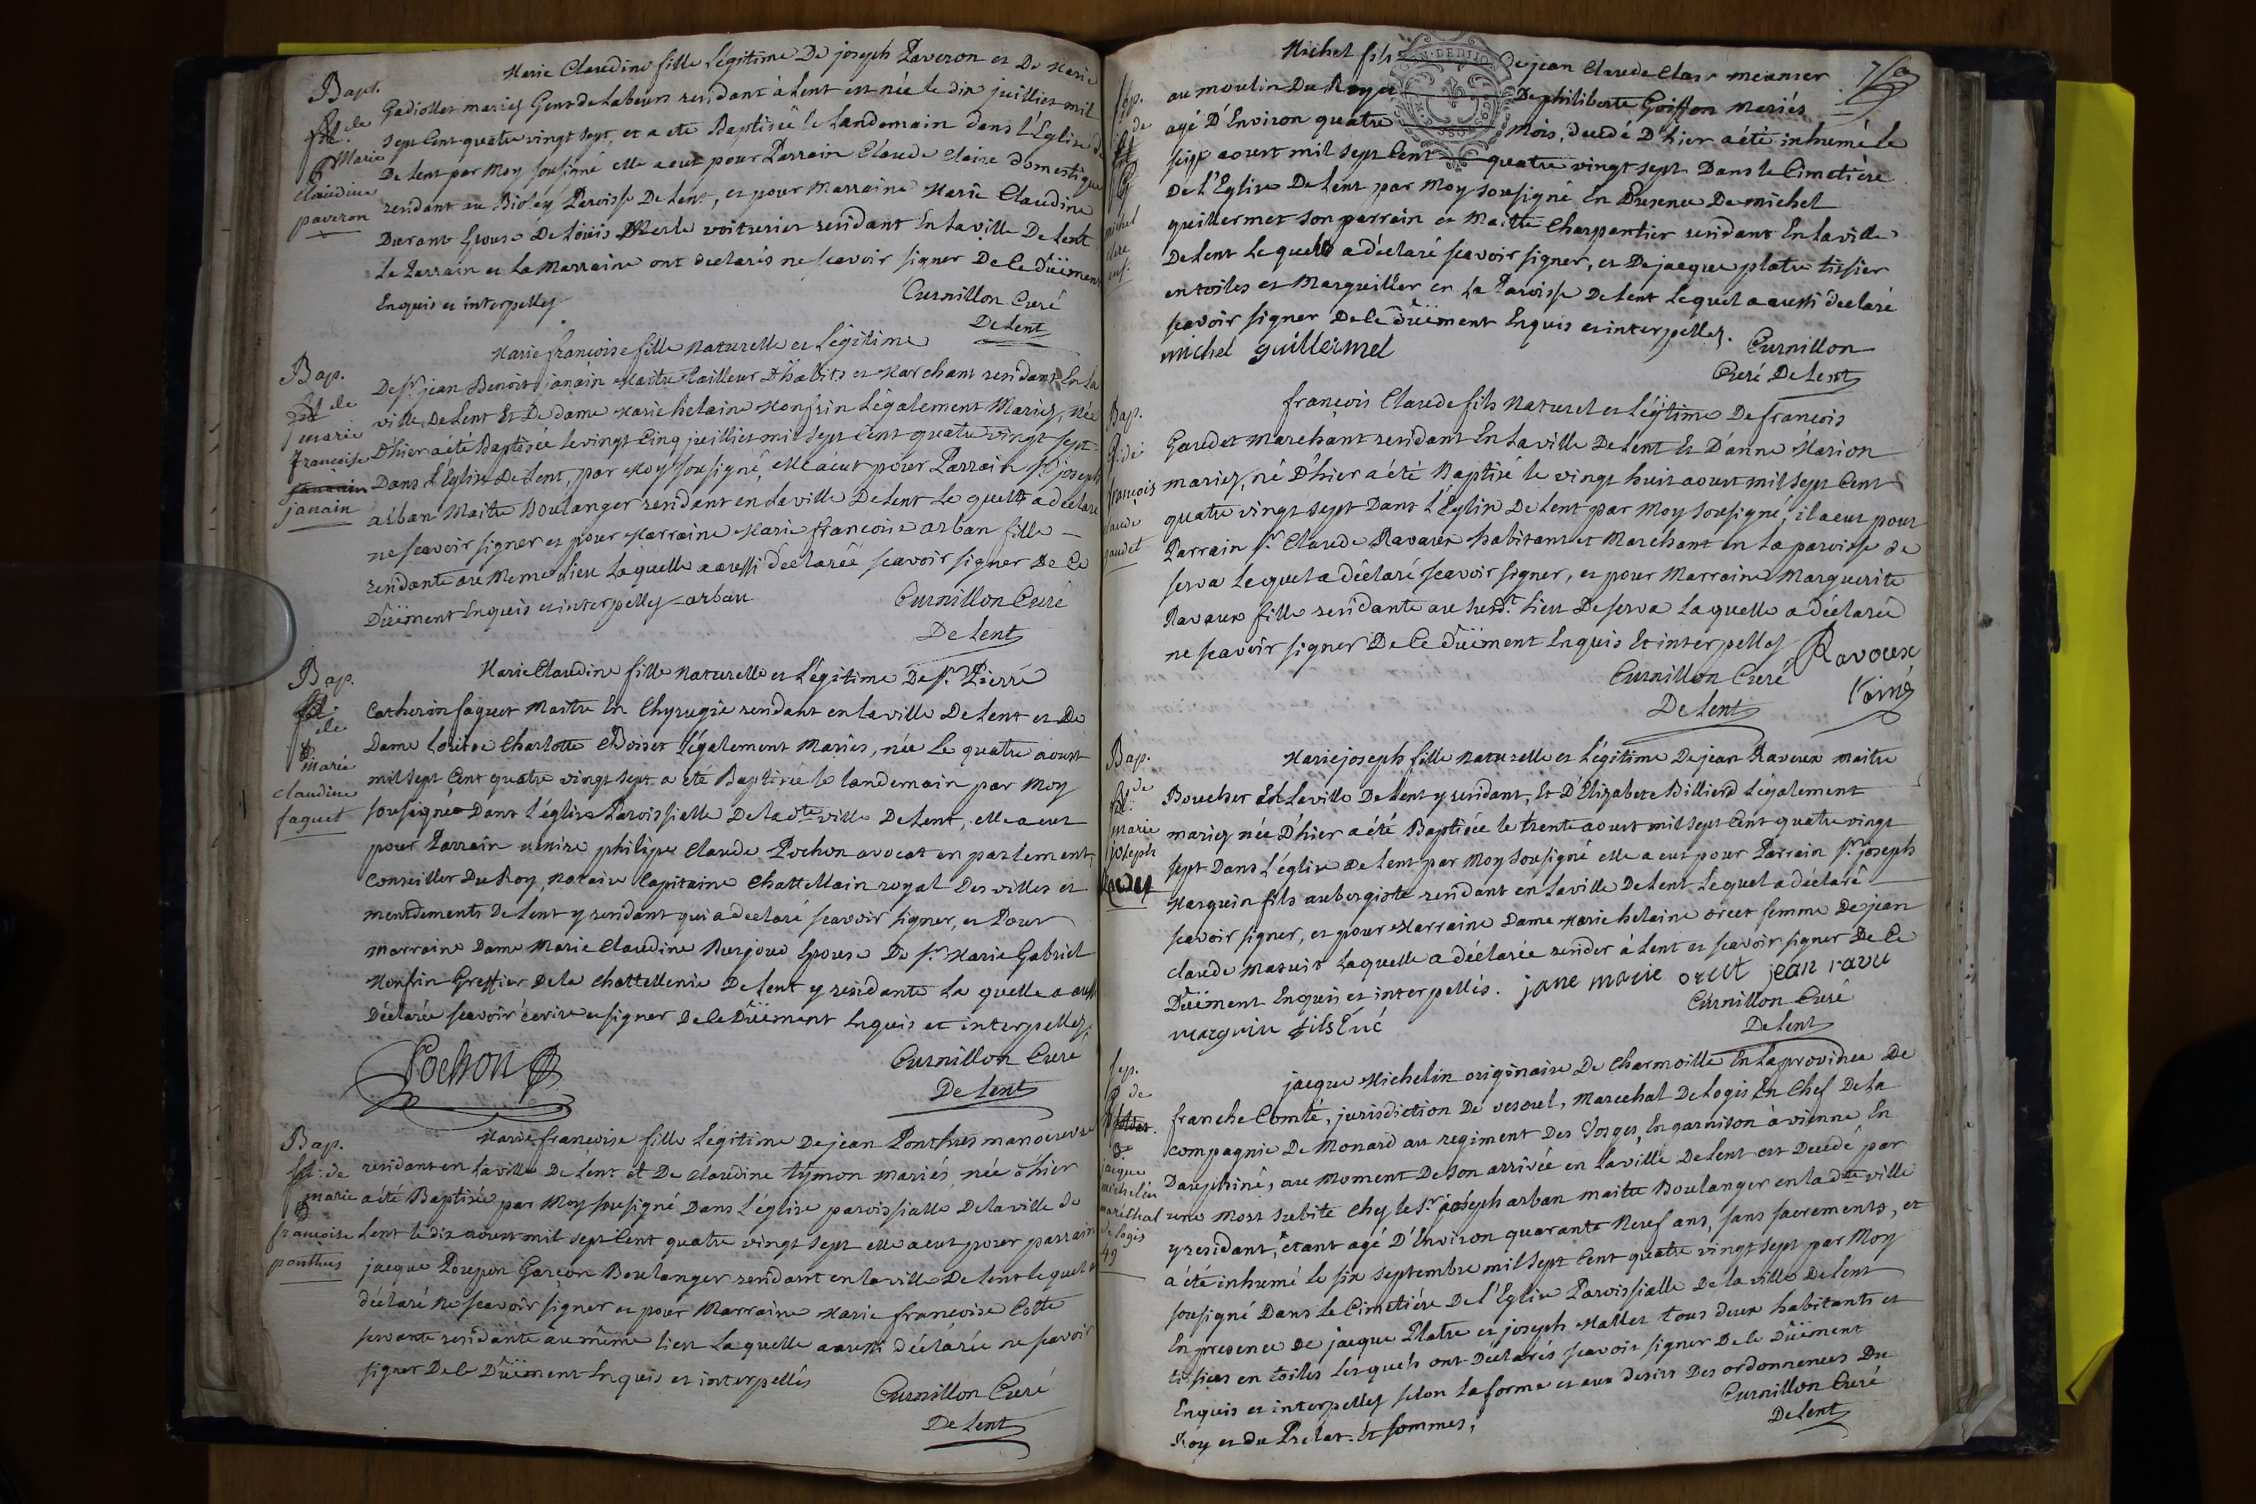 Marie Claudine fille Légitime De joseph Paveron et De Marie
Bapt.
Gadiollet mariés Gens de Labeurs residant à Lent est née le dix juilliet mil
fil. de
sept Cent quatre vingt sept, et a eté Baptisée le Landemain dans l'Eglise de
Marie
De Lent par Moy sousigné elle a eut pour Parrain Claude Claire domestique
Claudine
residant au Bioley Paroisse De Lent, et pour Marraine Marie Claudine
paveron
Durant Epouse De Loüis Merle voiturier residant En la ville De Lent
Le Parrain et La Marraine ont declarés ne scavoir signer De Ce Düëment
Enquis et interpellés
Curnillon Curé
De Lent
Marie françoise fille Naturelle et Légitime
Bap.
De sr. jean Benoit janain Maitre Tailleur D'habits et Marchant residant En La
fil de
ville De Lent Et De Dame Marie helaine Monfrin Légalement Mariés, Née
marie
D'hier a été Baptisée Le vingt Cinq juilliet mil sept Cent quatre vingt sept
françoise
Dans L'Eglise De Lent, par Moy sousigné, elle a eut pour Parrain sr. joseph
janain
arban Maitre Boulanger residant en La ville De Lent Le quel a déclaré
ne scavoir signer et pour Marraine Marie francoise arban fille
residante au Meme Lieu Laquelle a aussi déclarée scavoir signer De Ce
Düëment Enquis et interpellés arban
Curnillon Curé
De Lent
Marie Claudine fille Naturelle et Légitime De sr. Pierre
Bap.
Catherin faguet Maitre En Chyrugie residant en la ville De Lent et De
fil. de
Dame Loüise Charlotte Choisset Légalement Mariés, née Le quatre aoust
marie
mil sept Cent quatre vingt sept a eté Baptisée le landemain par Moy
claudine
sousigné Dans l'église Paroissialle De la dte ville De Lent, elle a eut
faguet
pour Parrain philipe Claude Pochon avocat en parlement
Conseiller Du Roy, Notaire Capitaine Chattellain royal Des villes et
mendements De Lent y residant qui a declaré scavoir signer, et Pour
marraine Dame Marie Claudine Burjoud Epouse De sr. Marie Gabriel
Monfrin Greffier De la Chattellenie De Lent y residante La quelle a aussi
Déclarée scavoir écrire et signer De Ce Düëment Enquis et interpellés.
Pochon
Curnillon Curé
De Lent
Marie françoise fille Légitime De jean Ponthus manoeuvre
Bap.
residant en la ville De Lent et De Claudine tymon mariés née d'hier
fil. de
marie
a été Baptisée par Moy sousigné Dans L'église paroissialle De la ville de
françoise
Lent le dix aoust mil sept Cent quatre vingt sept elle a eut pour parrain
ponthus
jacque Poupon Garçon Boulanger residant en la ville De Lent le quel a
déclaré Ne scavoir signer et pour Marraine Marie francoise Cotte
servante residante au même lieu Laquelle a aussi déclarée ne scavoir
signer De Ce Düëment Enquis et interpellés
Curnillon Curé
De Lent
Michel fils De jean Claude Clair meunier
au moulin Du Roya De philiberte Goiffon Mariés
Sep.
de
agé D'Environ quatre Mois, decedé D'hier a été inhumé le
seize aoust mil sept Cent quatre vingt sept Dans le Cimetière
De L'Eglise De Lent par Moy sousigné En Presence De michel
michel
guillermet son parrain et Maitre Charpentier residant En la ville
De Lent Lequel a déclaré scavoir signer, et De jacque platre tissier
en toiles et Marguillier en la Paroisse De Lent Lequel a aussi declaré
scavoir signer De Ce Düëment Enquis et interpellés.
michel guillermet
Curnillon
Curé De Lent
françois Claude fils Naturel et Légitime De françois
Bap.
Gaudet Marchant residant En La ville De Lent Et D'anne Marion
de
mariés, né D'hier a été Baptisé le vingt huit aoust mil sept Cent
françois
claude
quatre vingt sept Dans L'Eglise De Lent par Moy sousigné, il a eut pour
gaudet
Parrain sr. Claude Ravaux habitant et Marchant en La paroisse de
serva Lequel a déclaré scavoir signer, et pour Marraine Marguerite
Ravaux fille residante au susdt. Lieu De serva Laquelle a déclarée
ne scavoir signer De Ce Düëment Enquis Et interpellés
Ravoux
l'ainé
Curnillon Curé
De Lent
Marie joseph fille Naturelle et Légitime De jean Raveux maitre
Bap.
Boucher En La ville De Lent y residant, Et D'Elizabete Billierd Légalement
de
mariés née D'hier a été Baptisée le trente aoust mil sept Cent quatre vingt
marie
joseph
sept Dans L'église De Lent par Moy sousigné elle a eut pour Parrain sr. joseph
Marguin fils aubergiste residant en La ville De Lent Lequel a déclaré
scavoir signer, et pour Marraine Dame Marie helaine orcet femme De jean
claude Laquelle a déclarée resider à Lent et scavoir signer De Ce
Düëment Enquis et interpellés. jane marie orcet jean ravu
marguin fils
Curnillon Curé
De Lent
Sep.
jacque Michelin originaire De Charmoille En La province De
de
franche Comté, jurisdiction De vesoul, Marechal De Logis En Chef De La
compagnie De Monard au regiment Des Vosges, En garnison à vienne En
jacque
Dauphiné, au Moment De son arrivée en La ville De Lent est Decedé par
michelin
une Mort subite Chez le sr. joseph arban maitre Boulanger en la dte ville
marechal
de logis
y residant, étant agé D'Environ quarante Neuf ans, sans sacrements, et
49
a été inhumé le six septembre mil sept Cent quatre vingt sept par Moy
sousigné Dans le Cimetière De L'Eglise Paroissialle De La ville De Lent
En presence De jacque Platre et joseph Mallet tous deux habitants et
tissiers en toiles Lesquels ont Déclarés scavoir signer De Ce Düëment
Enquis et interpellés selon La forme et aux desirs Des ordonnences Du
Roy et du Prélat. Et sommes,
Curnillon Curé
De Lent